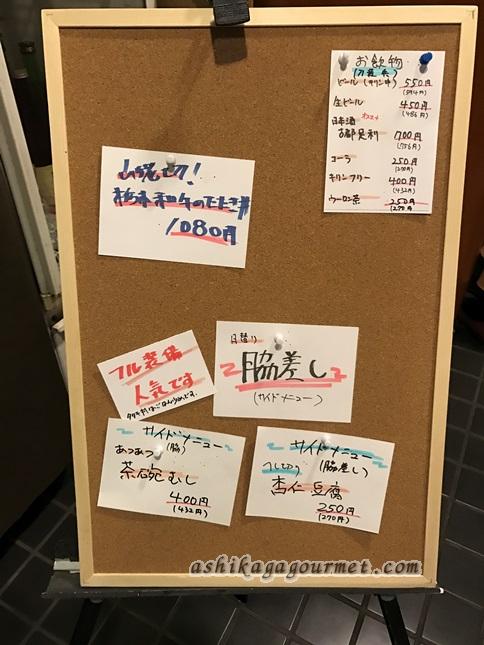 お飲物
(刀装具)
ビール(キリン中) 550円
(594円)
生ビール 450円
(486円)
日本酒 オススメ
古都足利 700円
(756円)
コーラ 250円
(270円)
キリンフリー 400円
(432円)
ウーロン茶 250円
(270円)
山姥切!
栃木和牛のたたき丼
1080円
フル装備
人気です
日替り
脇差し
(サイドメニュー)
サイドメニュー
(脇)
あつあつ
茶碗むし
400円
(432円)
サイドメニュー
(脇差し)
へし切り
杏仁豆腐
250円
(270円)
ashikagagourmet.com